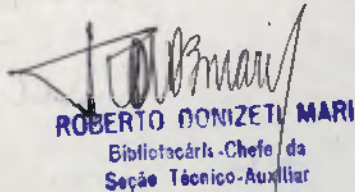 ROBERTO DONIZETI MARI
Bibliotecária-Chefe da
Seção Técnico-Auxiliar